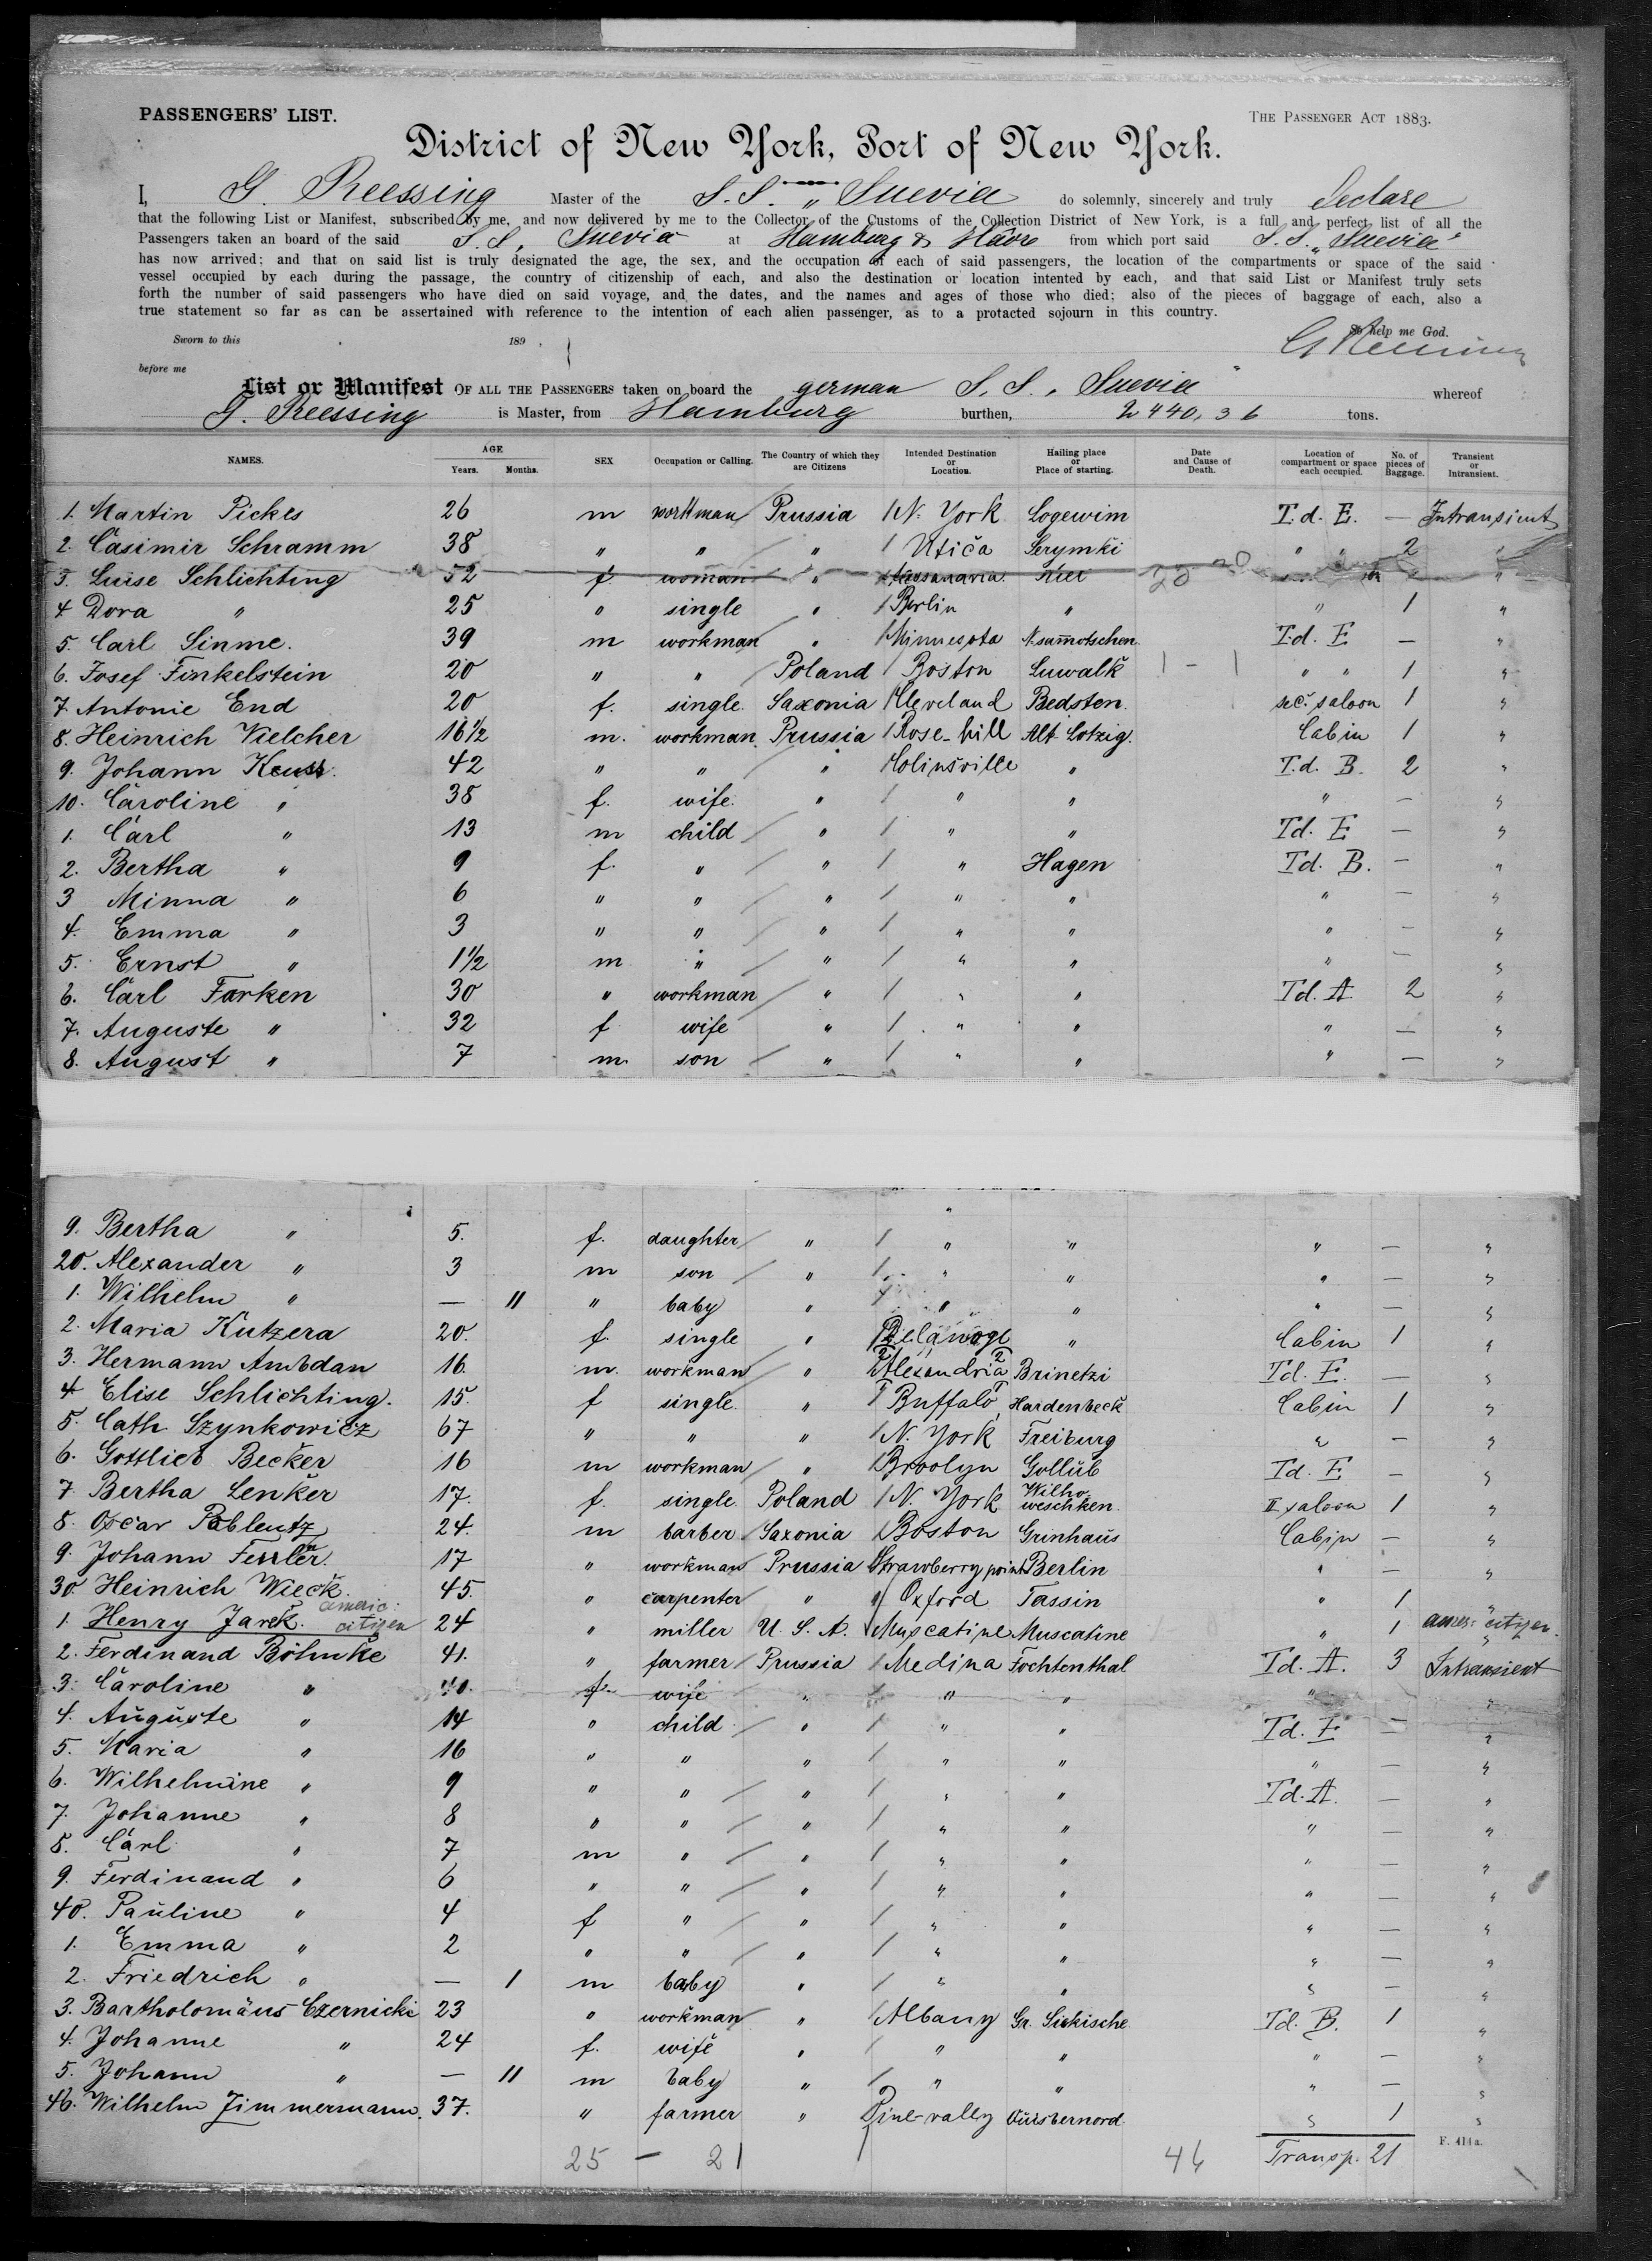 PASSENGERS' LIST.
THE PASSENGER ACT 1883.
District of New York, Port of New York.
I, G. Reessing Master of the S.S. „ Suevia do solemnly, sincerely and truly declare
that the following List or Manifest, subscribed by me, and now delivered by me to the Collector of the Customs of the Collection District of New York, is a full and perfect list of all the
Passengers taken an board of the said S.S. Suevia at Hamburg & Havre from which port said S.S. „Suevia"
has now arrived; and that on said list is truly designated the age, the sex, and the occupation of each of said passengers, the location of the compartments or space of the said
vessel occupied by each during the passage, the country of citizenship of each, and also the destination or location intented by each, and that said List or Manifest truly sets
forth the number of said passengers who have died on said voyage, and the dates, and the names and ages of those who died; also of the pieces of baggage of each, also a
true statement so far as can be assertained with reference to the intention of each alien passenger, as to a protacted sojourn in this country.
So help me God.
Sworn to this 189 .
before me
List or Manifest OF ALL THE PASSENGERS taken on board the german S.S. „ Suevia " whereof
G. Reessing is Master, from Hamburg burthen, 2440,36 tons.
NAMES. AGE Years. Months. SEX Occupation or Calling. The Country of which they are Citizens Intended Destination or Location. Hailing place or Place of starting. Date and Cause of Death. Location of compartment or space each occupied. No. of pieces of Baggage. Transient or Intransient.
1. Martin Pickes 26 m workman Prussia N. York Logewim T.d. E. — Intransient
2. Casimir Schramm 38 " " " Utica Serymki " " 2 "
3. Luise Schlichting 52 f. woman " Kiel " "
4 Dora " 25 " single " Berlin " " 1 "
5. Carl Sinme. 39 m workman " Minnesota N.samotschen T.d. E — "
6. Josef Finkelstein 20 " " Poland Boston Suwalk " " 1 "
7. Antonie End 20 f. single. Saxonia Cleveland Bedsten. sec. saloon 1 "
8. Heinrich Vielcher 16 1/2 m. workman Prussia Rose-hill Alt Lotzig. Cabin 1 "
9. Johann Keuss. 42 " " " Colinsville " T.d. B. 2 "
10. Caroline " 38 f. wife. " " " " — "
1. Carl " 13 m child " " " Td. E — "
2. Bertha " 9 f. " " " Hagen Td. B. — "
3 Minna " 6 " " " " " " — "
4. Emma " 3 " " " " " " — "
5. Ernst " 1 1/2 m " " " " " — "
6. Carl Farken 30 " workman " " " Td. A 2 "
7. Auguste " 32 f wife " " " " — "
8. August " 7 m. son " " " " — "
9. Bertha " 5. f. daughter " " " " — "
20. Alexander " 3 m son " " " " — "
1. Wilhelm " — 11 " baby " " " " — "
2. Maria Kutzera 20. f. single " " Cabin 1 "
3. Hermann Ambdan 16. m. workman " Alexandria Brinetzi Td. E. — "
4 Elise Schlichting. 15. f single. " Buffalo Hardenbeck Cabin 1 "
5. Cath. Szynkowicz 67 " " " N. York Freiburg " — "
6. Gottlieb Becker 16 m workman " Broolyn Gollub Td. E — "
7. Bertha Lenker 17. f. single. Poland N. York Wilhoweschken. II saloon 1 "
8. Oscar Pöblentz 24. m barber Saxonia Boston Grinhaus Cabin — "
9. Johann Fessler. 17 " workman Prussia Strawberry point Berlin " — "
30. Heinrich Wieck. 45. " carpenter " Oxford Tassin " 1 "
1. Henry Jarek. americ: citizen 24 " miller U. S. A. Muscatine Muscatine " 1 amer: citizen.
2. Ferdinand Böhmke 41. " farmer Prussia Medina Fochtenthal Td. A. 3 Intransient
3. Caroline " 40. f. wife " " " " "
4. Auguste " 14 " child " " " Td. E — "
5. Maria " 16 " " " " " " — "
6. Wilhelmine " 9 " " " " " Td. A. — "
7. Johanne " 8 " " " " " " — "
8. Carl " 7 m " " " " " — "
9. Ferdinand " 6 " " " " " " — "
40. Pauline " 4 f " " " " " — "
1. Emma " 2 " " " " " " — "
2. Friedrich " — 1 m baby " " " " — "
3. Bartholomäus Czernicki 23 " workman " Albany Gr. Siekische Td. B. 1 "
4. Johanne " 24 f. wife " " " " — "
5. Johann " — 11 m baby " " " " — "
46. Wilhelm Zimmermann. 37. " farmer " Pine-valley " 1 "
25 — 21 46 Transp. 21
F. 411a.